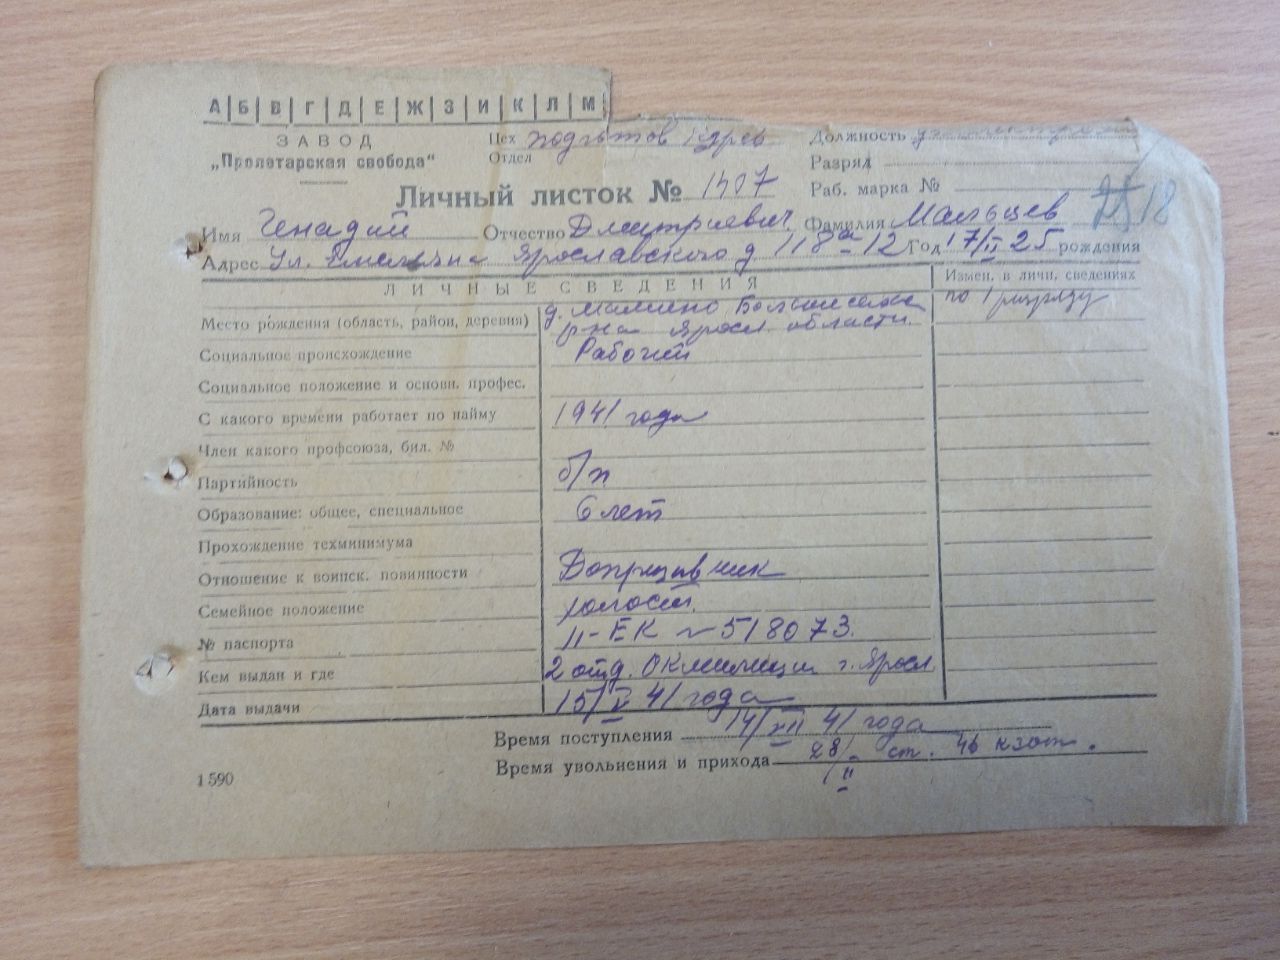 А Б В Г Д Е Ж З И К Л М
ЗАВОД
„Пролетарская свобода“
Цех
Отдел
Должность
Разряд
Раб. марка №
Личный листок № 1407
18
Имя Генадий Отчество Дмитриевич Фамилия Мальцев
Адрес Ул. Емельяна Ярославского д 118а-12 Год 17/II 25 рождения
ЛИЧНЫЕ СВЕДЕНИЯ
Измен. в личн. сведениях
по 1 разряду
Место рождения (область, район, деревня) д. Мамино
р-на Яросл. области.
Социальное происхождение Рабочий
Социальное положение и основн. профес.
С какого времени работает по найму 1941 года
Член какого профсоюза, бил. №
Партийность б/п
Образование: общее, специальное 6 лет
Прохождение техминимума
Отношение к воинск. повинности Допризывник
Семейное положение холост.
№ паспорта II-ЕК № 518073.
Кем выдан и где 2 отд. милиции г. Яросл
Дата выдачи 15/V 41 года
Время поступления 14/VII 41 года
Время увольнения и прихода 28/II ст. 46 кзот.
1590